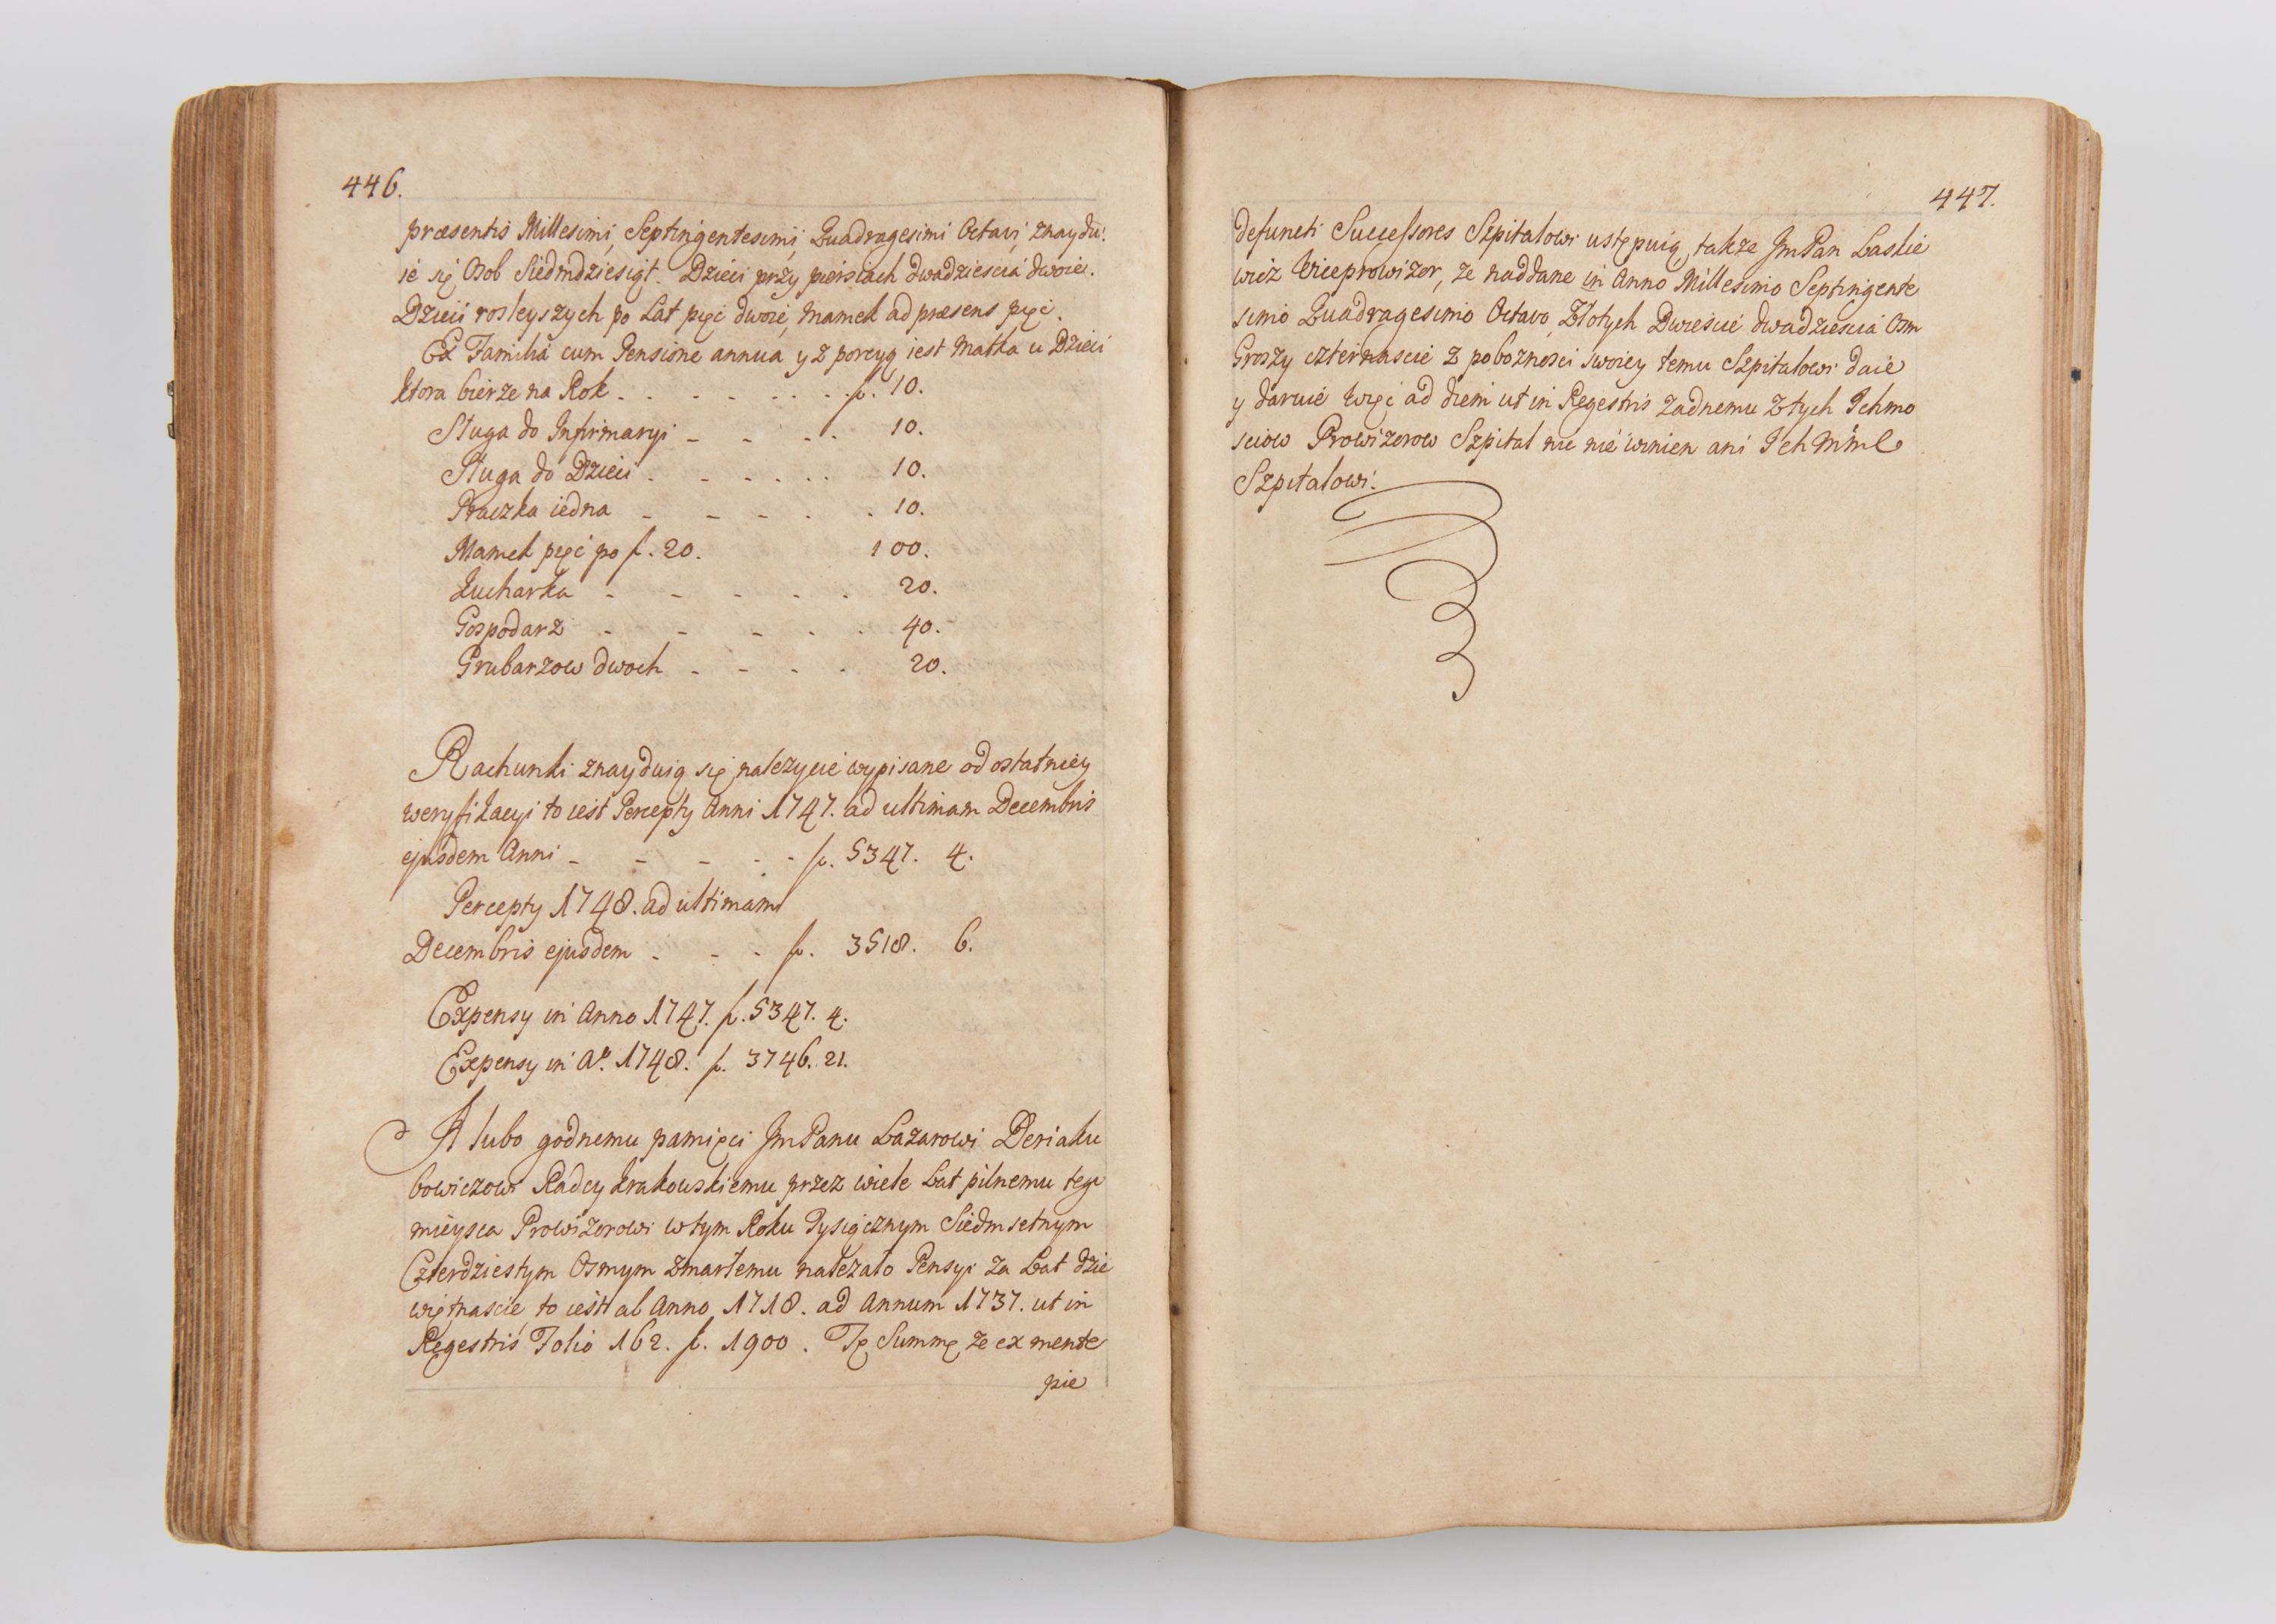 446.
præsentis Millesimi, Septingentesimi, Quadragesimi Octavi, znaydu:
ie się Osob Siedmdziesiąt. Dzieci przy piersiach dwadziescia dwoie.
Dzieci rosleyszych po Lat pięc dwoie, Mamek ad præsens pięc.
Ex Familia cum Pensione annua y z porcyą iest Matka u Dzieci
ktora bierze na Rok . . . . . . . . f. 10.
Sługa do Infirmaryi - - . . 10.
Sługa do Dzieci . . . . . . 10.
Praczka iedna - - - . . 10.
Mamek pięć po f. 20. 100.
Kucharka - - - . . 20.
Gospodarz - - - . . 40.
Grubarzow dwoch - - . . 20.
Rachunki znayduią się należycie wypisane od ostatniey
weryfikacyi to iest Percepty Anni 1747. ad ultimam Decembris
ejusdem Anni - - - - - f. 5347. 4.
Percepty 1748. ad ultimam
Decembris ejusdem - - - f. 3518. 6.
Expensy in Anno 1747. f. 5347. 4.
Expensy in Aº. 1748. f. 3746. 21.
A lubo godnemu pamięci JmPanu Lazarowi Deriaku
bowiczowi Radcy Krakowskiemu przez wiele Lat pilnemu tego
mieysca Prowizorowi w tym Roku Tysiącznym Siedmsetnym
Czterdziestym Osmym zmarłemu należało Pensyi za Lat dzie
więtnascie, to iest ab Anno 1718. ad Annum 1737. ut in
Regestris Folio 162. f. 1900. Tę Summę, że ex mente
pie
447.
defuncti Successores Szpitalowi ustępuią, także JmPan Laskie
wicz Viceprowizor, że naddane in Anno Millesimo Septingente
simo Quadragesimo Octavo, Złotych Dwieście dwadziescia Osm
Groszy czternascie z pobożnosci swoiey temu Szpitalowi daie
y daruie więc ad diem ut in Regestris żadnemu z tych Ichmo
sciow Prowizorow Szpital nic nie winien ani Ich Mml
Szpitalowi.